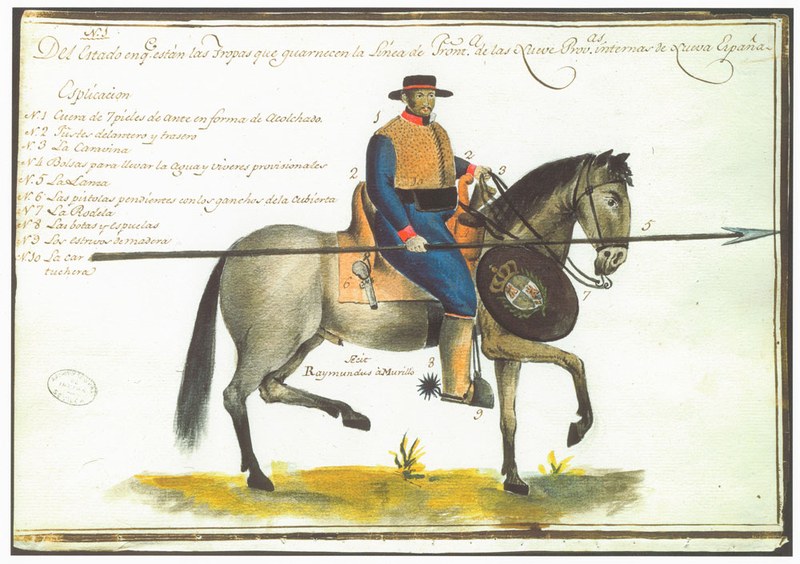 N. 1
Del Estado en q.e están las Tropas que guarnecen la Linea de Front.a de las Nueve Prov.as internas de Nueva España
Esplicacion
N. 1 Cuera de 7 pieles de Ante en forma de Acolchado.
N. 2 Fustes delantero y trasero
N. 3 La Caravina
N. 4 Bolsas para llevar la Agua y viveres provisionales
N. 5 La Lanza
N. 6 Las pistolas pendientes con los ganchos de la Cubierta
N. 7 La Rodela
N. 8 Las botas y espuelas
N. 9 Los estrivos de madera
N. 10 La car
tuchera
1
2
2
3
5
6
7
8
9
Fecit
Raymundus à Murillo